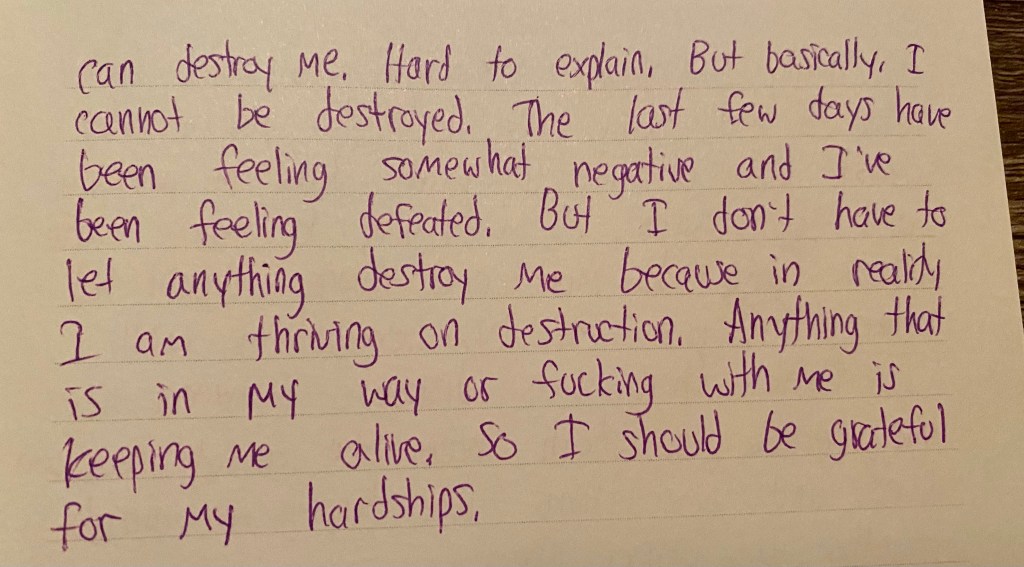 can destroy me. Hard to explain. But basically, I
cannot be destroyed. The last few days have
been feeling somewhat negative and I've
been feeling defeated. But I don't have to
let anything destroy me because in reality
I am thriving on destruction. Anything that
is in my way or fucking with me is
keeping me alive. So I should be grateful
for my hardships.